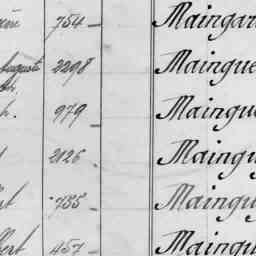 754 Maingar
Auguste 2298 Maingue
979 Maingue
2126 Maingu
735 Maingu
457 Maingu